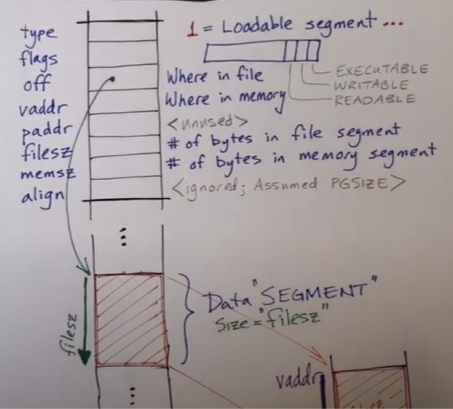 type
flags
off
vaddr
paddr
filesz
memsz
align
1 = Loadable segment ...
EXECUTABLE
WRITABLE
READABLE
Where in file
Where in memory
<unused>
# of bytes in file segment
# of bytes in memory segment
<ignored; Assumed PGSIZE>
...
filesz
Data "SEGMENT"
Size="filesz"
vaddr
...